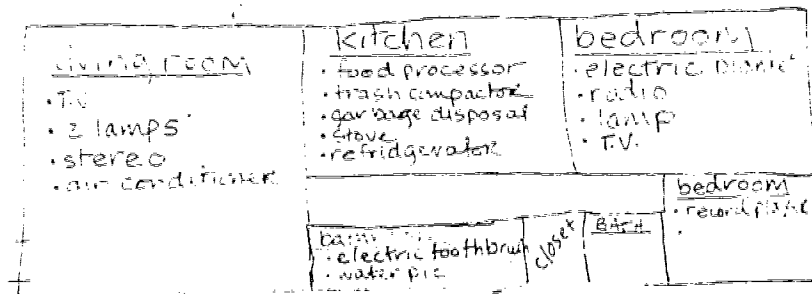 living room
• T.V
• 2 lamps
• stereo
• air conditioner
kitchen
• food processor
• trash compactor
• garbage disposal
• stove
• refridgerator
bedroom
• electric blanket
• radio
• lamp
• T.V.
bedroom
• record player
•
• electric toothbrush
• water pic
closet
BATH